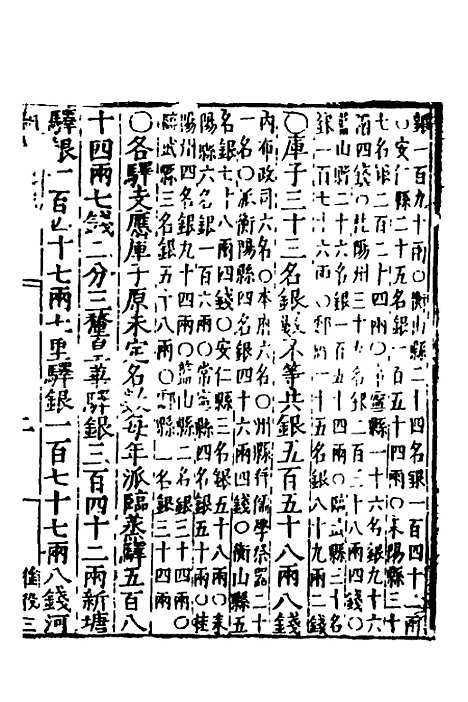 銀一百九十兩〇衡山縣二十四名銀一百四十二兩
〇安仁縣二十五名銀一百五十四兩〇耒陽縣三十
七名銀二百二十四兩〇常寧縣一十六名銀九十六
兩四錢〇桂陽州三十九名銀二百三十八兩四錢〇
藍山縣二十六名銀一百五十四兩〇臨武縣三十名
銀一百七十六兩〇縣一十五名銀八十九兩二錢
〇庫子三十三名銀數不等共銀五百五十八兩八錢
內布政司六名〇本府六名〇州縣并儒學祭器二十
一名〇派衡陽縣四名銀四十六兩四錢〇衡山縣五
名銀七十八兩四錢〇安仁縣三名銀五十八兩〇耒
陽縣六名銀一百六兩〇常寧縣四名銀五十兩〇桂
陽州四名銀九十四兩〇藍山縣三名銀三十四兩〇
臨武縣三名銀五十八兩〇縣一名銀三十四兩
〇各驛支應庫子原未定名數每年派臨蒸驛五百八
十四兩七錢二分三釐華驛銀三百四十二兩新塘
驛銀一百十七兩七里驛銀一百七十七兩八錢河
二
徭役三